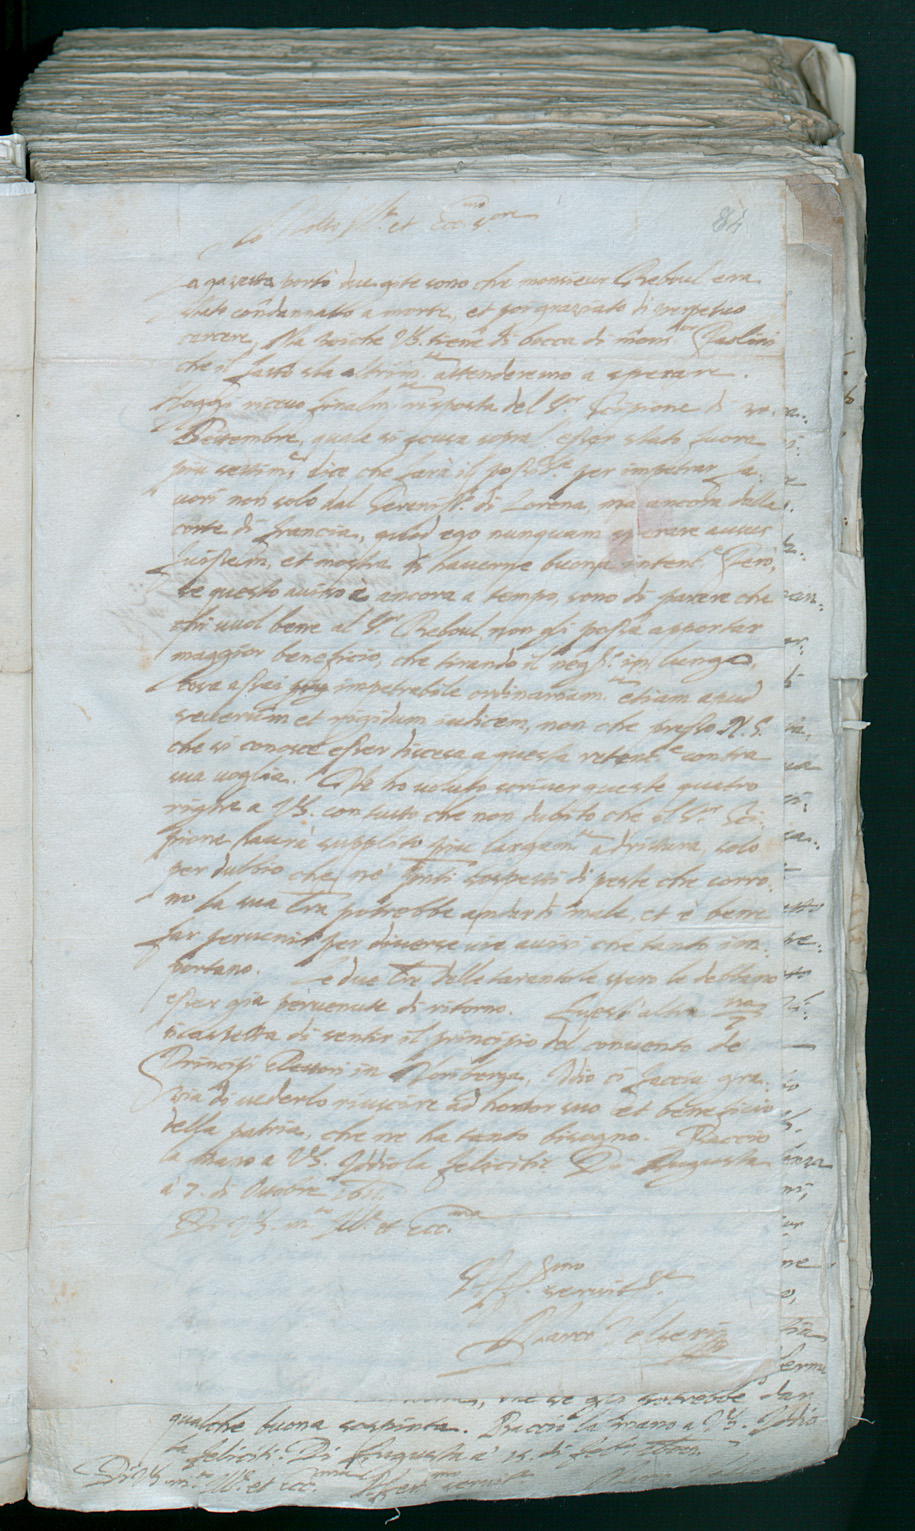 Molto Ill.re et Ecc.mo s.ore
84
La gazetta portò due gite sono che monsieur Reboul era
stato condannato a morte, et poi graziato di perpetuo
carcere, Ma poiche VS. tiene di bocca di mons.or Paolini
che il fatto sta altrim.te attenderemo a sperare.
Hoggi ricevo finalm.te risposta del S.or Scipione di 30.
Settembre, quale si scusa sopra l'esser stato fuora
piu settim.e dice che farà il possib.le per impetrar fa=
uori non solo dal Sereniss.o di Lorena, ma ancora dalla
corte di Francia, quod ego nunquam sperare ausus
fuissem, et mostra di hauerne buona intent.e Però,
se questo auiso è ancora a tempo, sono di parere che
chi uuol bene al S.or Reboul, non gli possa apportar
maggior beneficio, che tirando il neg.o in lungo,
cosa assai impetrabile ordinariam.te etiam apud
seuerum et rigidum iudicem, non che presso N. S.
che si conosce esser discesa a questa retent.e contra
sua uoglia. Ne ho uoluto scriuer queste quatro
righe a VS. con tutto che non dubito che il S.or Sci=
pione haurà supplito piu largam.te a drittura, solo
per dubio che, ne tanti sospetti di peste che corro=
no la sua lra potrebbe andarsi male, et è bene
far peruenir per diuerse uie auisi che tanto im=
portano. Le due lre della tarantola spero le debbano
esser gia peruenute di ritorno. Quest'altra
s'aspetta di sentir il principio del conuento de
Principi Elettori in Norimberga, Iddio ci faccia gra=
zia di uederlo riuscire ad honor suo et beneficio
della patria, che ne ha tanto bisogno. Baccio
la mano a VS. Iddio la feliciti. Di Augusta
a 7. di Ottobre 1611.
Di VS. m.to Ill.re et Ecc.ma
Aff.mo seruit.re
Marco Velseri
che se gli potrebbe dar
qualche buona sospinta. Baccio la mano a VS. Iddio
la feliciti. Di Augusta a' 15. di
Di VS m.to Ill.re et Ecc.ma Affett.mo seruit.re